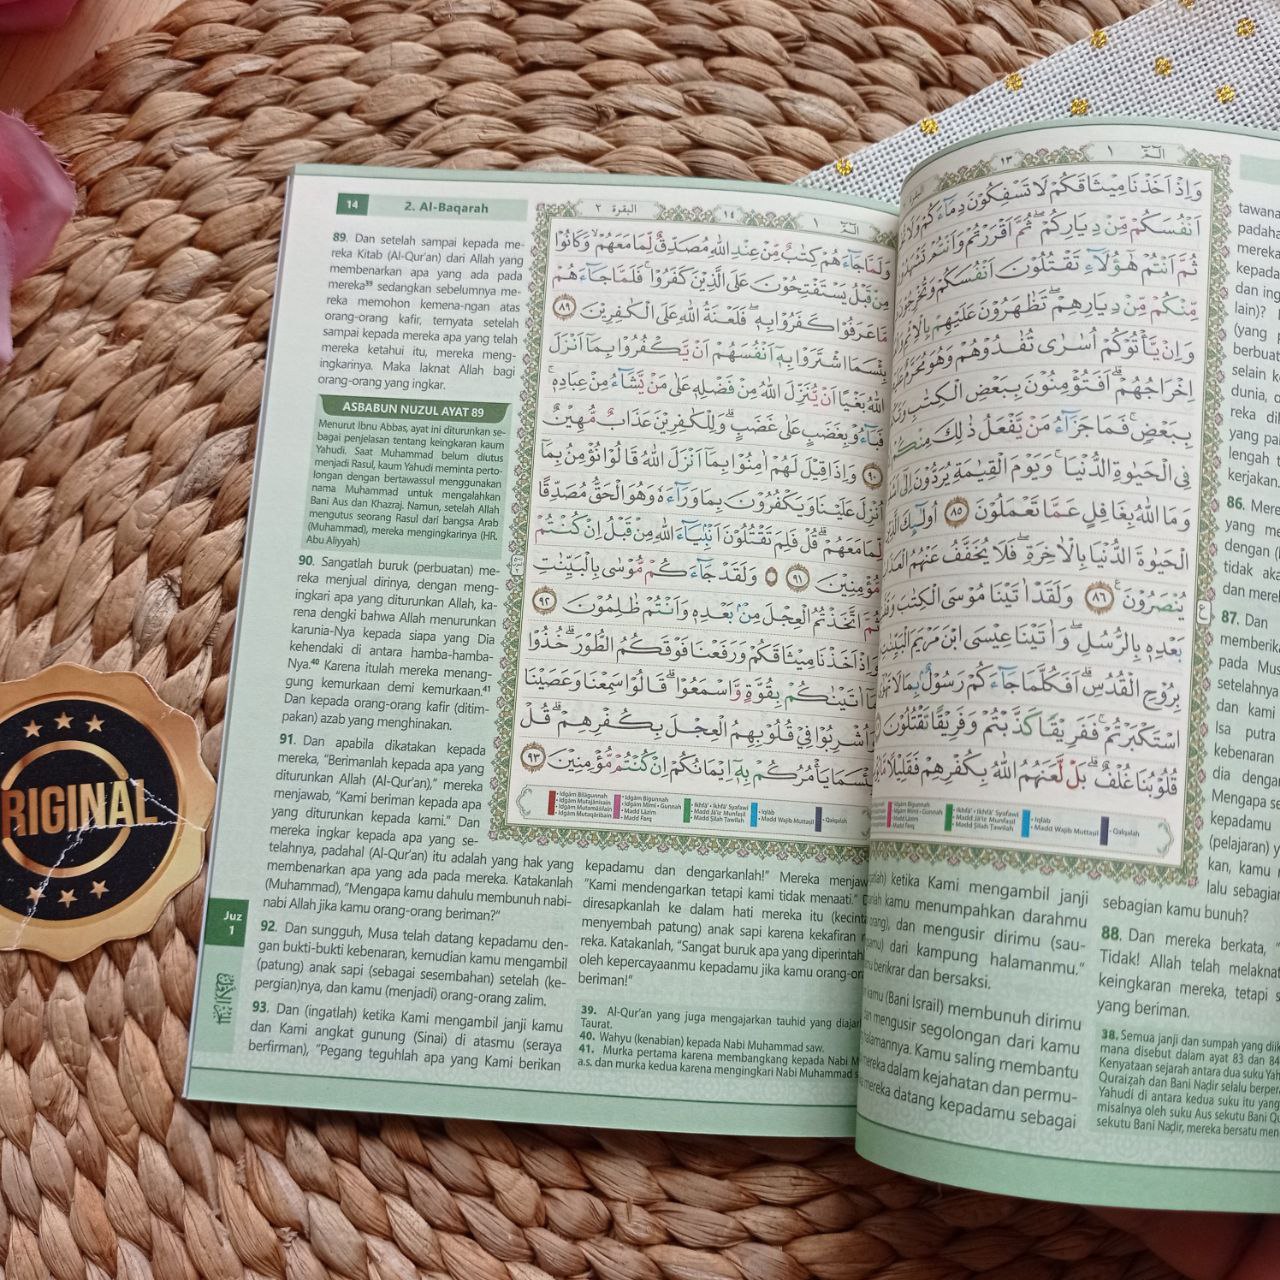 14
2. Al-Baqarah
89. Dan setelah sampai kepada me-
reka Kitab (Al-Qur’an) dari Allah yang
membenarkan apa yang ada pada
mereka³⁹ sedangkan sebelumnya me-
reka memohon kemena-ngan atas
orang-orang kafir, ternyata setelah
sampai kepada mereka apa yang telah
mereka ketahui itu, mereka meng-
ingkarinya. Maka laknat Allah bagi
orang-orang yang ingkar.
ASBABUN NUZUL AYAT 89
Menurut Ibnu Abbas, ayat ini diturunkan se-
bagai penjelasan tentang keingkaran kaum
Yahudi. Saat Muhammad belum diutus
menjadi Rasul, kaum Yahudi meminta perto-
longan dengan bertawassul menggunakan
nama Muhammad untuk mengalahkan
Bani Aus dan Khazraj. Namun, setelah Allah
mengutus seorang Rasul dari bangsa Arab
(Muhammad), mereka mengingkarinya (HR.
Abu Aliyyah)
90. Sangatlah buruk (perbuatan) me-
reka menjual dirinya, dengan meng-
ingkari apa yang diturunkan Allah, ka-
rena dengki bahwa Allah menurunkan
karunia-Nya kepada siapa yang Dia
kehendaki di antara hamba-hamba-
Nya.⁴⁰ Karena itulah mereka menang-
gung kemurkaan demi kemurkaan.⁴¹
Dan kepada orang-orang kafir (ditim-
pakan) azab yang menghinakan.
91. Dan apabila dikatakan kepada
mereka, “Berimanlah kepada apa yang
diturunkan Allah (Al-Qur’an),” mereka
menjawab, “Kami beriman kepada apa
yang diturunkan kepada kami.” Dan
mereka ingkar kepada apa yang se-
telahnya, padahal (Al-Qur’an) itu adalah yang hak yang
membenarkan apa yang ada pada mereka. Katakanlah
(Muhammad), “Mengapa kamu dahulu membunuh nabi-
nabi Allah jika kamu orang-orang beriman?“
92. Dan sungguh, Musa telah datang kepadamu den-
gan bukti-bukti kebenaran, kemudian kamu mengambil
(patung) anak sapi (sebagai sesembahan) setelah (ke-
pergian)nya, dan kamu (menjadi) orang-orang zalim.
93. Dan (ingatlah) ketika Kami mengambil janji kamu
dan Kami angkat gunung (Sinai) di atasmu (seraya
berfirman), “Pegang teguhlah apa yang Kami berikan
kepadamu dan dengarkanlah!” Mereka menjaw
“Kami mendengarkan tetapi kami tidak menaati.”
diresapkanlah ke dalam hati mereka itu (kecinta
menyembah patung) anak sapi karena kekafiran
reka. Katakanlah, “Sangat buruk apa yang diperintah
oleh kepercayaanmu kepadamu jika kamu orang-or
beriman!”
39. Al-Qur’an yang juga mengajarkan tauhid yang diajar
Taurat.
40. Wahyu (kenabian) kepada Nabi Muhammad saw.
41. Murka pertama karena membangkang kepada Nabi M
a.s. dan murka kedua karena mengingkari Nabi Muhammad s
Juz
1
البقرة ٢
١٤
الٓمّٓ ١
وَلَمَّا جَاۤءَهُمْ كِتٰبٌ مِّنْ عِنْدِ اللّٰهِ مُصَدِّقٌ لِّمَا مَعَهُمْۙ وَكَانُوْا
مِنْ قَبْلُ يَسْتَفْتِحُوْنَ عَلَى الَّذِيْنَ كَفَرُوْاۚ فَلَمَّا جَاۤءَهُمْ
مَّا عَرَفُوْا كَفَرُوْا بِهٖۖ فَلَعْنَةُ اللّٰهِ عَلَى الْكٰفِرِيْنَ ٨٩
بِئْسَمَا اشْتَرَوْا بِهٖٓ اَنْفُسَهُمْ اَنْ يَّكْفُرُوْا بِمَآ اَنْزَلَ
اللّٰهُ بَغْيًا اَنْ يُّنَزِّلَ اللّٰهُ مِنْ فَضْلِهٖ عَلٰى مَنْ يَّشَاۤءُ مِنْ عِبَادِهٖۚ
فَبَاۤءُوْ بِغَضَبٍ عَلٰى غَضَبٍۗ وَلِلْكٰفِرِيْنَ عَذَابٌ مُّهِيْنٌ
٩٠ وَاِذَا قِيْلَ لَهُمْ اٰمِنُوْا بِمَآ اَنْزَلَ اللّٰهُ قَالُوْا نُؤْمِنُ بِمَآ
اُنْزِلَ عَلَيْنَا وَيَكْفُرُوْنَ بِمَا وَرَاۤءَهٗ وَهُوَ الْحَقُّ مُصَدِّقًا
لِّمَا مَعَهُمْۗ قُلْ فَلِمَ تَقْتُلُوْنَ اَنْۢبِيَاۤءَ اللّٰهِ مِنْ قَبْلُ اِنْ كُنْتُمْ
مُّؤْمِنِيْنَ ٩١ ۞ وَلَقَدْ جَاۤءَكُمْ مُّوْسٰى بِالْبَيِّنٰتِ
ثُمَّ اتَّخَذْتُمُ الْعِجْلَ مِنْۢ بَعْدِهٖ وَاَنْتُمْ ظٰلِمُوْنَ ٩٢
وَاِذْ اَخَذْنَا مِيْثَاقَكُمْ وَرَفَعْنَا فَوْقَكُمُ الطُّوْرَۗ خُذُوْا
مَآ اٰتَيْنٰكُمْ بِقُوَّةٍ وَّاسْمَعُوْاۗ قَالُوْا سَمِعْنَا وَعَصَيْنَا
وَاُشْرِبُوْا فِيْ قُلُوْبِهِمُ الْعِجْلَ بِكُفْرِهِمْۗ قُلْ
بِئْسَمَا يَأْمُرُكُمْ بِهٖٓ اِيْمَانُكُمْ اِنْ كُنْتُمْ مُّؤْمِنِيْنَ ٩٣
• Idgām Bilāgunnah
• Idgām Mutajānisain
• Idgām Mutamāṡilain
• Idgām Mutaqāribain
• Idgām Bigunnah
• Idgām Mimi • Gunnah
• Madd Lāzim
• Madd Farq
• Ikhfā’ • Ikhfā’ Syafawi
• Madd Jā’iz Munfaṣil
• Madd Ṣilah Ṭawīlah
• Iqlāb
• Madd Wajib Muttaṣil
• Qalqalah
١٣
الٓمّٓ ١
وَاِذْ اَخَذْنَا مِيْثَاقَكُمْ لَا تَسْفِكُوْنَ دِمَاۤءَكُمْ وَلَا
اَنْفُسَكُمْ مِّنْ دِيَارِكُمْ ثُمَّ اَقْرَرْتُمْ وَاَنْتُمْ
ثُمَّ اَنْتُمْ هٰٓؤُلَاۤءِ تَقْتُلُوْنَ اَنْفُسَكُمْ
مِّنْكُمْ مِّنْ دِيَارِهِمْۖ تَظٰهَرُوْنَ عَلَيْهِمْ
وَاِنْ يَّأْتُوْكُمْ اُسٰرٰى تُفٰدُوْهُمْ وَهُوَ
اِخْرَاجُهُمْۗ اَفَتُؤْمِنُوْنَ بِبَعْضِ الْكِتٰبِ
بِبَعْضٍۚ فَمَا جَزَاۤءُ مَنْ يَّفْعَلُ ذٰلِكَ
فِى الْحَيٰوةِ الدُّنْيَاۚ وَيَوْمَ الْقِيٰمَةِ يُرَدُّوْنَ
وَمَا اللّٰهُ بِغَافِلٍ عَمَّا تَعْمَلُوْنَ ٨٥ اُولٰۤىِٕكَ
الْحَيٰوةَ الدُّنْيَا بِالْاٰخِرَةِۖ فَلَا يُخَفَّفُ عَنْهُمُ
يُنْصَرُوْنَ ٨٦ وَلَقَدْ اٰتَيْنَا مُوْسَى الْكِتٰبَ
بَعْدِهٖ بِالرُّسُلِ وَاٰتَيْنَا عِيْسَى ابْنَ مَرْيَمَ
بِرُوْحِ الْقُدُسِۗ اَفَكُلَّمَا جَاۤءَكُمْ رَسُوْلٌۢ بِمَا لَا
اسْتَكْبَرْتُمْۚ فَفَرِيْقًا كَذَّبْتُمْ وَفَرِيْقًا تَقْتُلُوْنَ
قُلُوْبُنَا غُلْفٌۗ بَلْ لَّعَنَهُمُ اللّٰهُ بِكُفْرِهِمْ فَقَلِيْلًا
• Ikhfā’ • Ikhfā’ Syafawi
• Madd Jā’iz Munfaṣil
• Madd Ṣilah Ṭawīlah
• Iqlāb
• Madd Wajib Muttaṣil
• Qalqalah
ketika Kami mengambil janji
kamu menumpahkan darahmu
orang), dan mengusir dirimu (sau-
dari kampung halamanmu.”
berikrar dan bersaksi.
kamu (Bani Israil) membunuh dirimu
dan mengusir segolongan dari kamu
halamannya. Kamu saling membantu
mereka dalam kejahatan dan permu-
mereka datang kepadamu sebagai
tawana
padaha
mereka
kepada
dan ing
lain)?
(yang
berbuat
selain k
dunia, d
reka di
yang pa
lengah t
kerjakan.
86. Mere
yang me
dengan (
tidak aka
dan mere
87. Dan
memberika
pada Mus
setelahnya
dan kami
Isa putra
kebenaran
dia dengan
Mengapa se
kepadamu
(pelajaran) y
kan, kamu
lalu sebagian
sebagian kamu bunuh?
88. Dan mereka berkata, “
Tidak! Allah telah melaknat
keingkaran mereka, tetapi s
yang beriman.
38. Semua janji dan sumpah yang diik
mana disebut dalam ayat 83 dan 84
Kenyataan sejarah antara dua suku Yah
Quraiẓah dan Bani Naḍir selalu berper
Yahudi di antara kedua suku itu yang
misalnya oleh suku Aus sekutu Bani Qu
sekutu Bani Naḍir, mereka bersatu men
RIGINAL